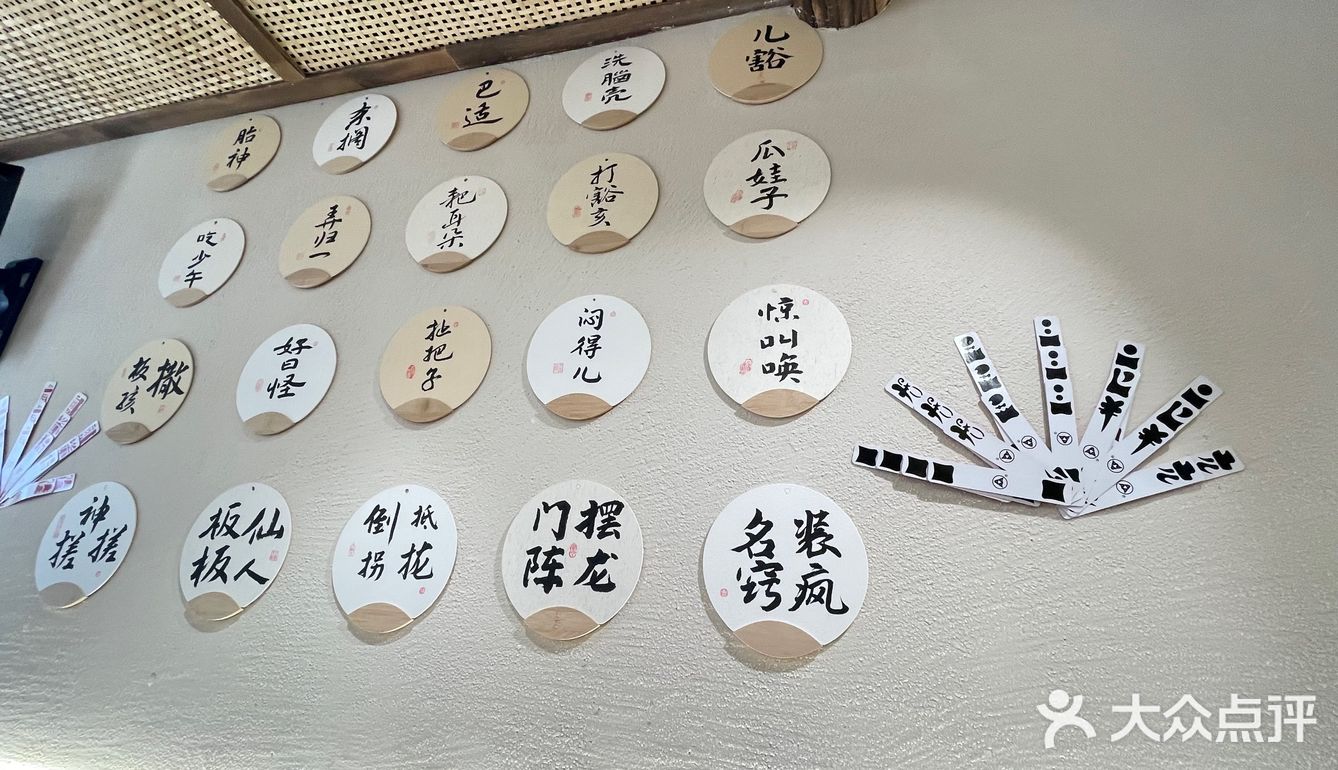 胎神
杀搁
巴适
洗腦壳
儿豁
吃少午
弄归一
耙耳朵
打豁亥
瓜娃子
撒
好日怪
扯把子
闷得儿
惊叫唤
神搓搓
仙人
板板
抵拢
倒拐
摆龙
门阵
装疯
名窍
大众点评